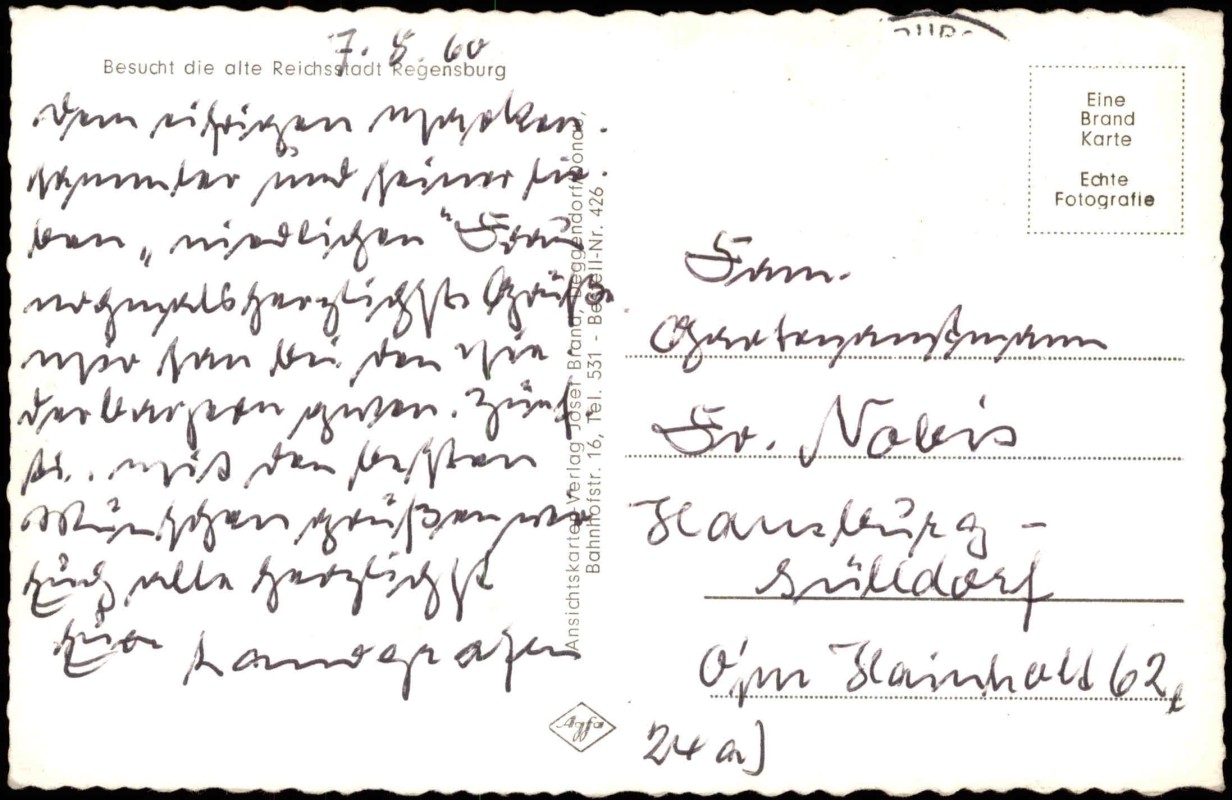 7. 5. 60
Besucht die alte Reichsstadt Regensburg
Dem eifrigen Marken-
sammler und seiner lie-
ben „niedlichen" Frau
nochmals herzlichste Grüße
wir san bei den Nie
derbayern gwen.
mit den besten
Wünschen grüßen wir
Euch alle herzlichst
Eure Landgrafen
Ansichtskarten-Verlag Josef Brand, Deggendorf/Donau,
Bahnhofstr. 16, Tel. 531 - Bestell-Nr. 426
Eine
Brand
Karte
Echte
Fotografie
Fam.
Fr. Nobis
Hamburg-
Sülldorf
Op'n Hainholt 62,
24a)
Agfa